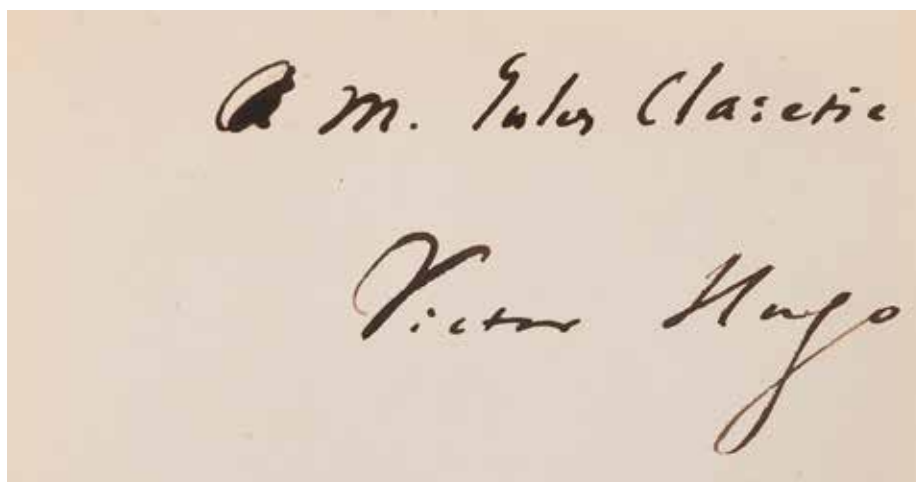 A M. Jules Claretie
Victor Hugo